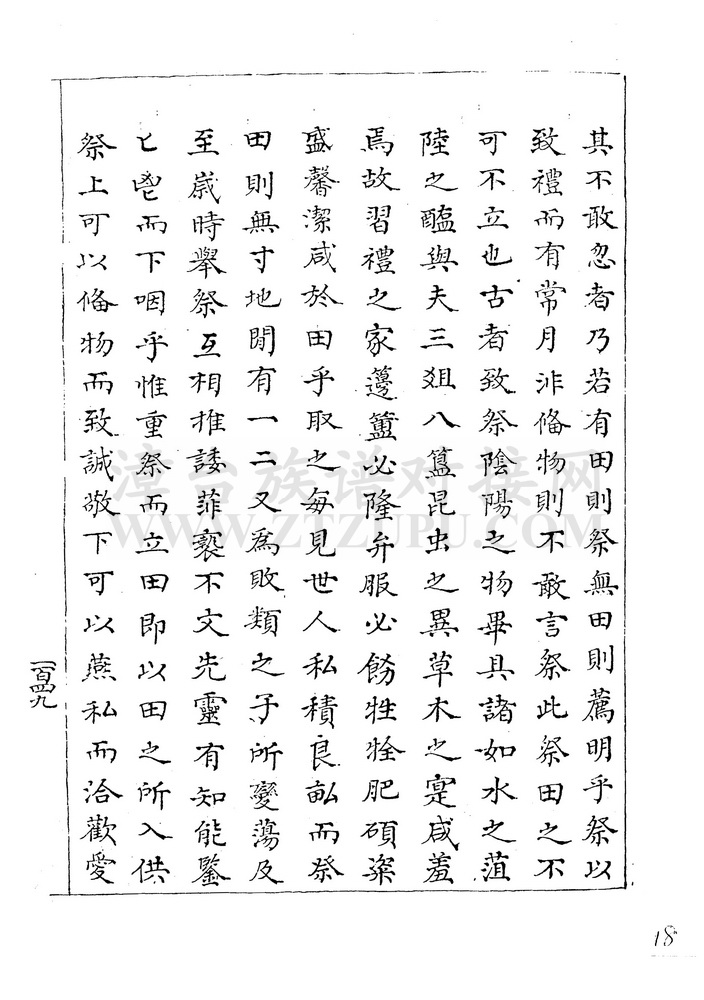 其不敢忍者乃若有田則祭無田則薦明乎祭以
致禮而有常月非俻物則不敢言祭此祭田之不
可不立也古者致祭陰陽之物畢具諸如水之菹
陸之醢與夫三爼八簋昆虫之異草木之寔咸羞
焉故習禮之家籩簠必隆弁服必飭牲牷肥碩粢
盛馨潔咸於田乎取之每見世人私積良畝而祭
田則無寸地閒有一二又為敗類之子所變蕩及
至嵗時舉祭互相推諉菲褻不文先靈有知能鑒
匕鬯而下咽乎惟重祭而立田即以田之所入供
祭上可以俻物而致誠敬下可以燕私而洽歡愛
一百四九
18
漳台族谱对接网
WWW.ZTZUPU.COM